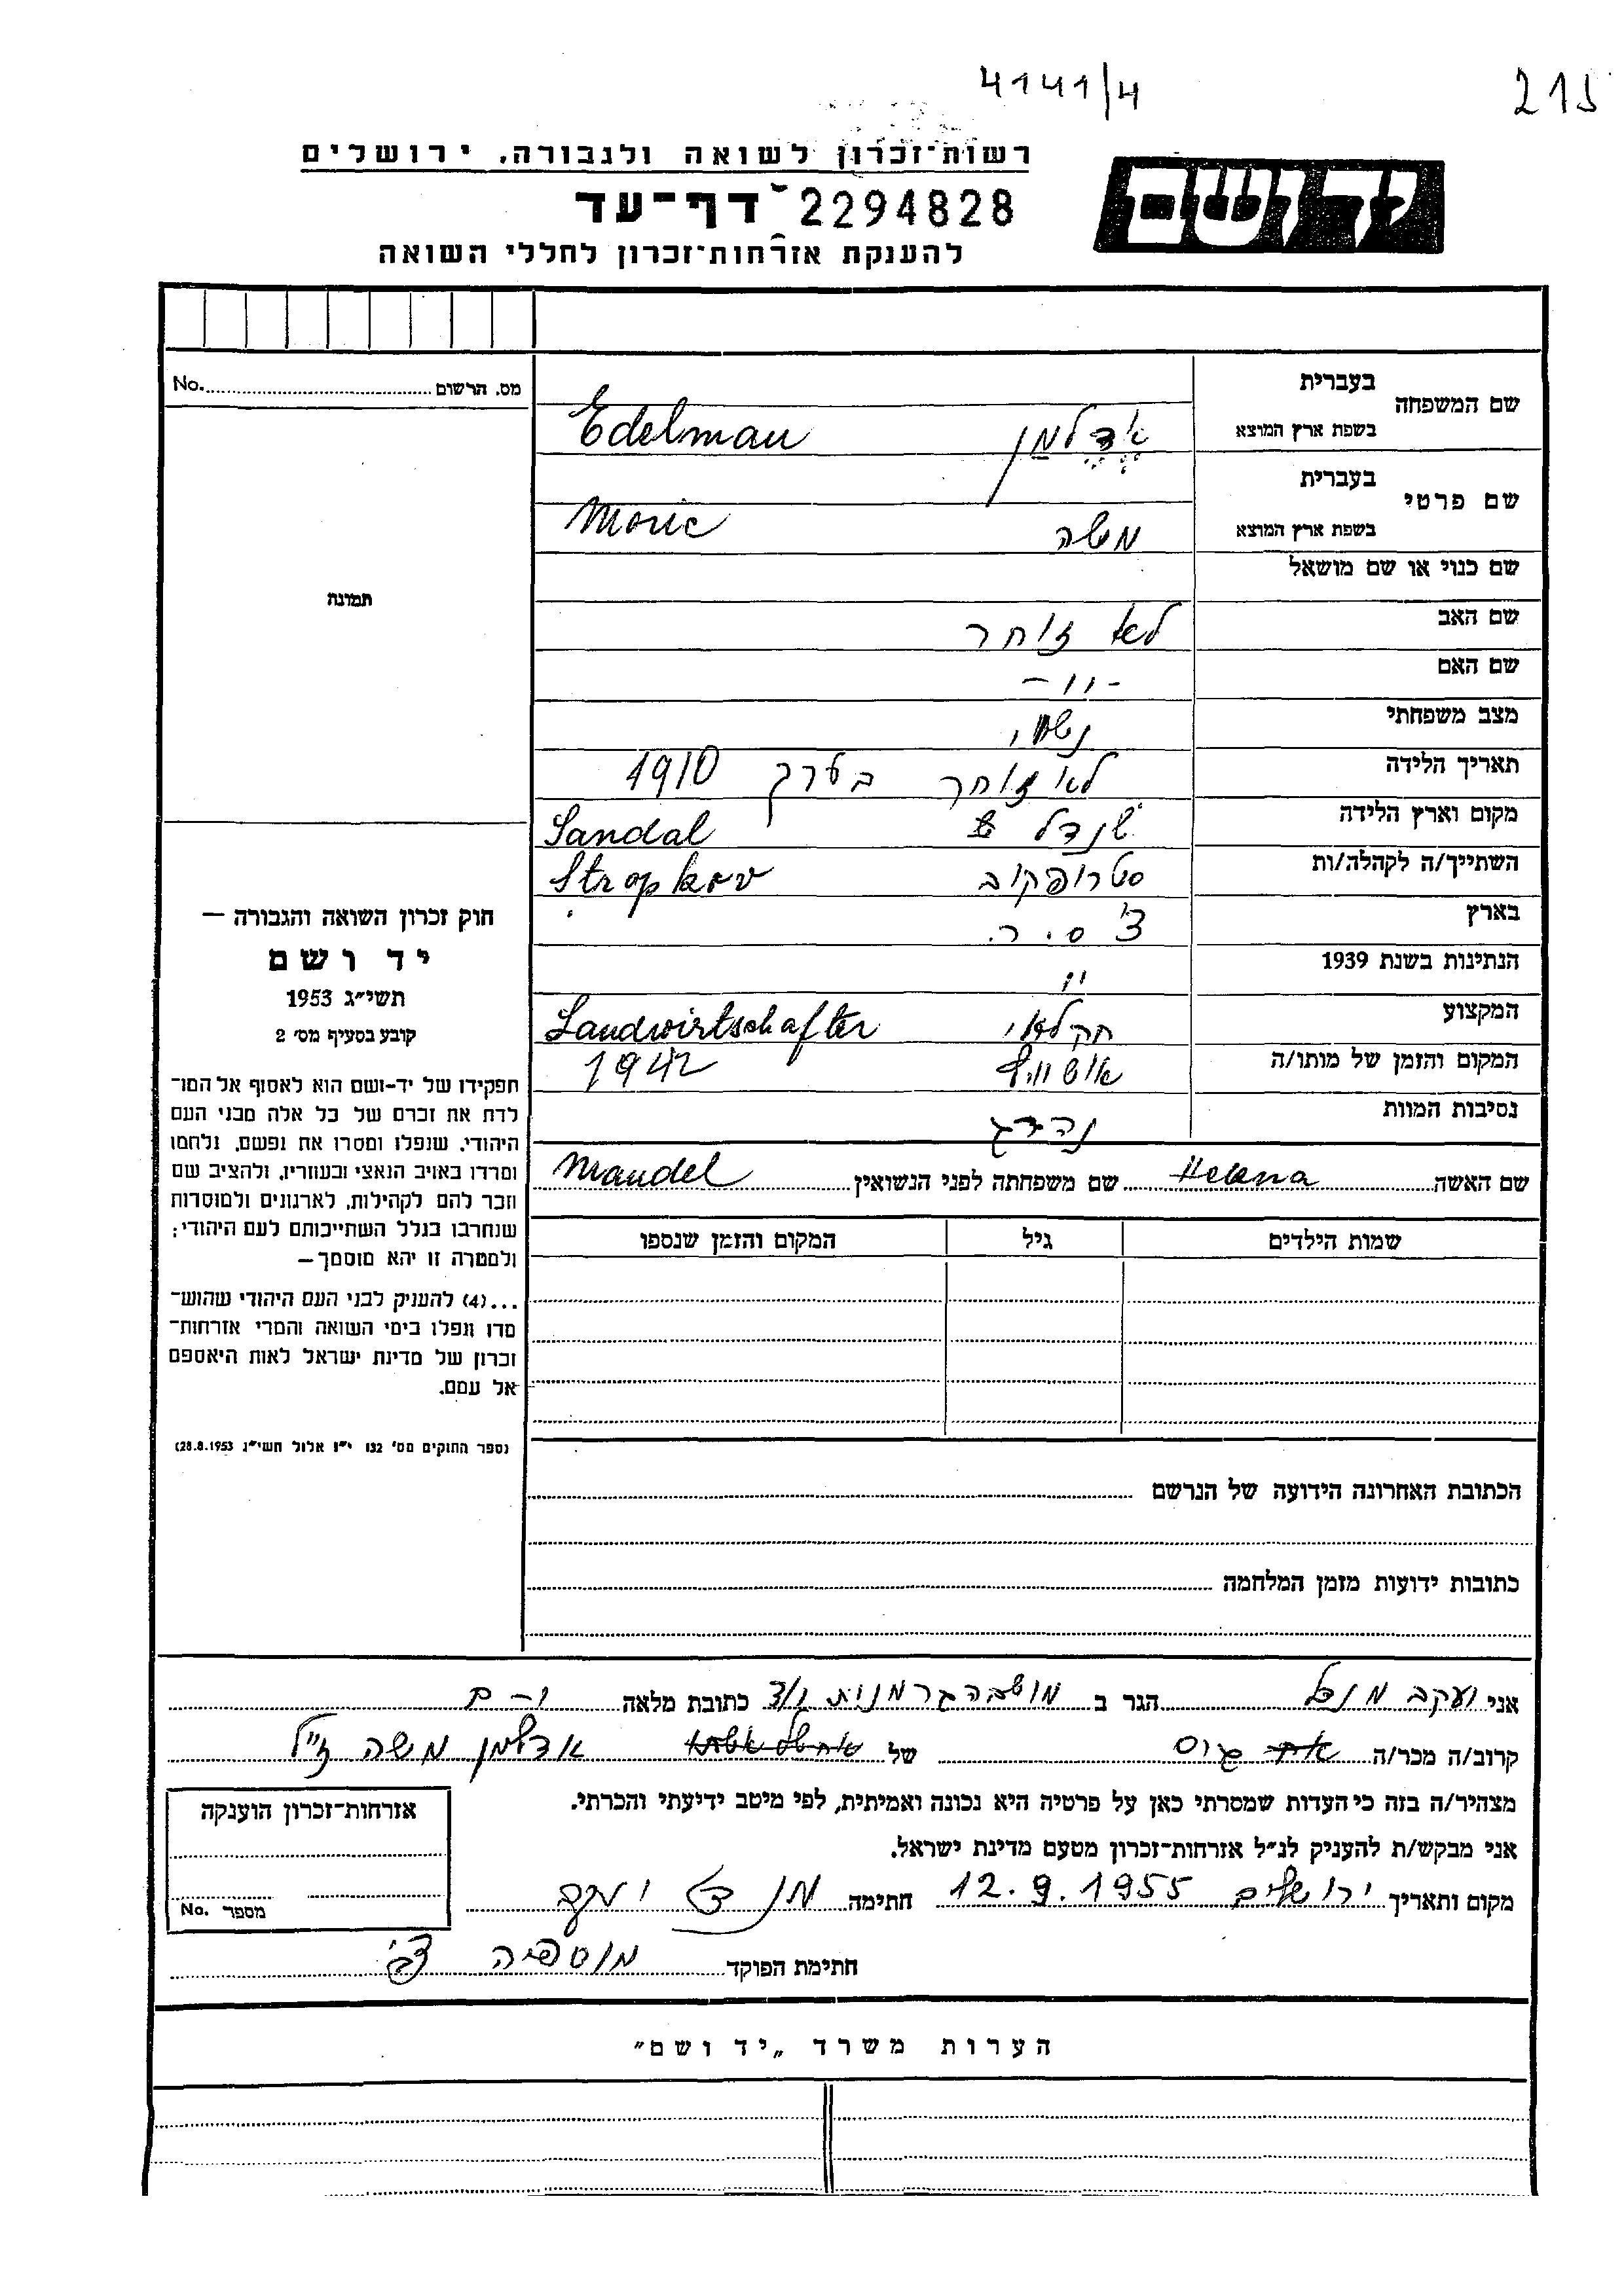 4141/4
215
רשות־זכרון לשואה ולגבורה, ירושלים
ידושם
דף־עד 2294828
להענקת אזרחות־זכרון לחללי השואה
מס. הרשום No.
שם המשפחה בעברית
בשפת ארץ המוצא
אדלמן Edelman
שם פרטי בעברית
בשפת ארץ המוצא
משה Moric
תמונה
שם כנוי או שם מושאל
שם האב לא זוכר
שם האם -וו-
מצב משפחתי נשוי
תאריך הלידה לא זוכר בערך 1910
מקום וארץ הלידה שנדל Sandal
השתייך/ה לקהלה/ות סטרופקוב Stropkov
בארץ צ'.ס.ר.
הנתינות בשנת 1939 וו
המקצוע חקלאי Landwirtschafter
המקום והזמן של מותו/ה אושוויץ 1942
נסיבות המוות נהרג
שם האשה Helena שם משפחתה לפני הנשואין Mandel
שמות הילדים גיל המקום והזמן שנספו
חוק זכרון השואה והגבורה –
יד ושם
תשי״ג 1953
קובע בסעיף מס׳ 2
תפקידו של יד-ושם הוא לאסוף אל המו־
לדת את זכרם של כל אלה מבני העם
היהודי, שנפלו ומסרו את נפשם, נלחמו
ומרדו באויב הנאצי ובעוזריו, ולהציב שם
וזכר להם לקהילות, לארגונים ולמוסדות
שנחרבו בגלל השתייכותם לעם היהודי;
ולמטרה זו יהא מוסמך–
...(4) להעניק לבני העם היהודי שהוש־
מדו ונפלו בימי השואה והמרי אזרחות־
זכרון של מדינת ישראל לאות היאספם
אל עמם.
(ספר החוקים מס׳ 132 י״ז אלול תשי״ג 28.8.1953)
הכתובת האחרונה הידועה של הנרשם
כתובות ידועות מזמן המלחמה
אני יעקב מנדל הגר ב מושבה גרמנית כתובת מלאה י-ם
קרוב/ה מכר/ה גיס של אדלמן משה ז״ל
מצהיר/ה בזה כי העדות שמסרתי כאן על פרטיה היא נכונה ואמיתית, לפי מיטב ידיעתי והכרתי.
אני מבקש/ת להעניק לנ״ל אזרחות־זכרון מטעם מדינת ישראל.
מקום ותאריך ירושלים 12.9.1955 חתימה מנדל יעקב
חתימת הפוקד
אזרחות־זכרון הוענקה
מספר No.
הערות משרד „יד ושם״